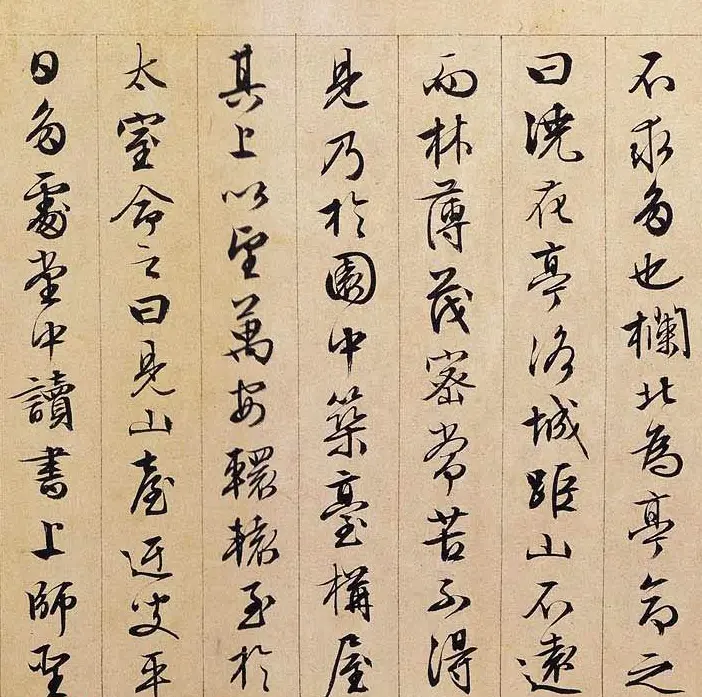 不求多也欄北為亭命之
曰澆花亭洛城距山不遠
而林薄茂密常苦不得
見乃於園中築臺構屋
其上以望萬安轘轅至於
太室命之曰見山臺迂叟平
日多處堂中讀書上師聖